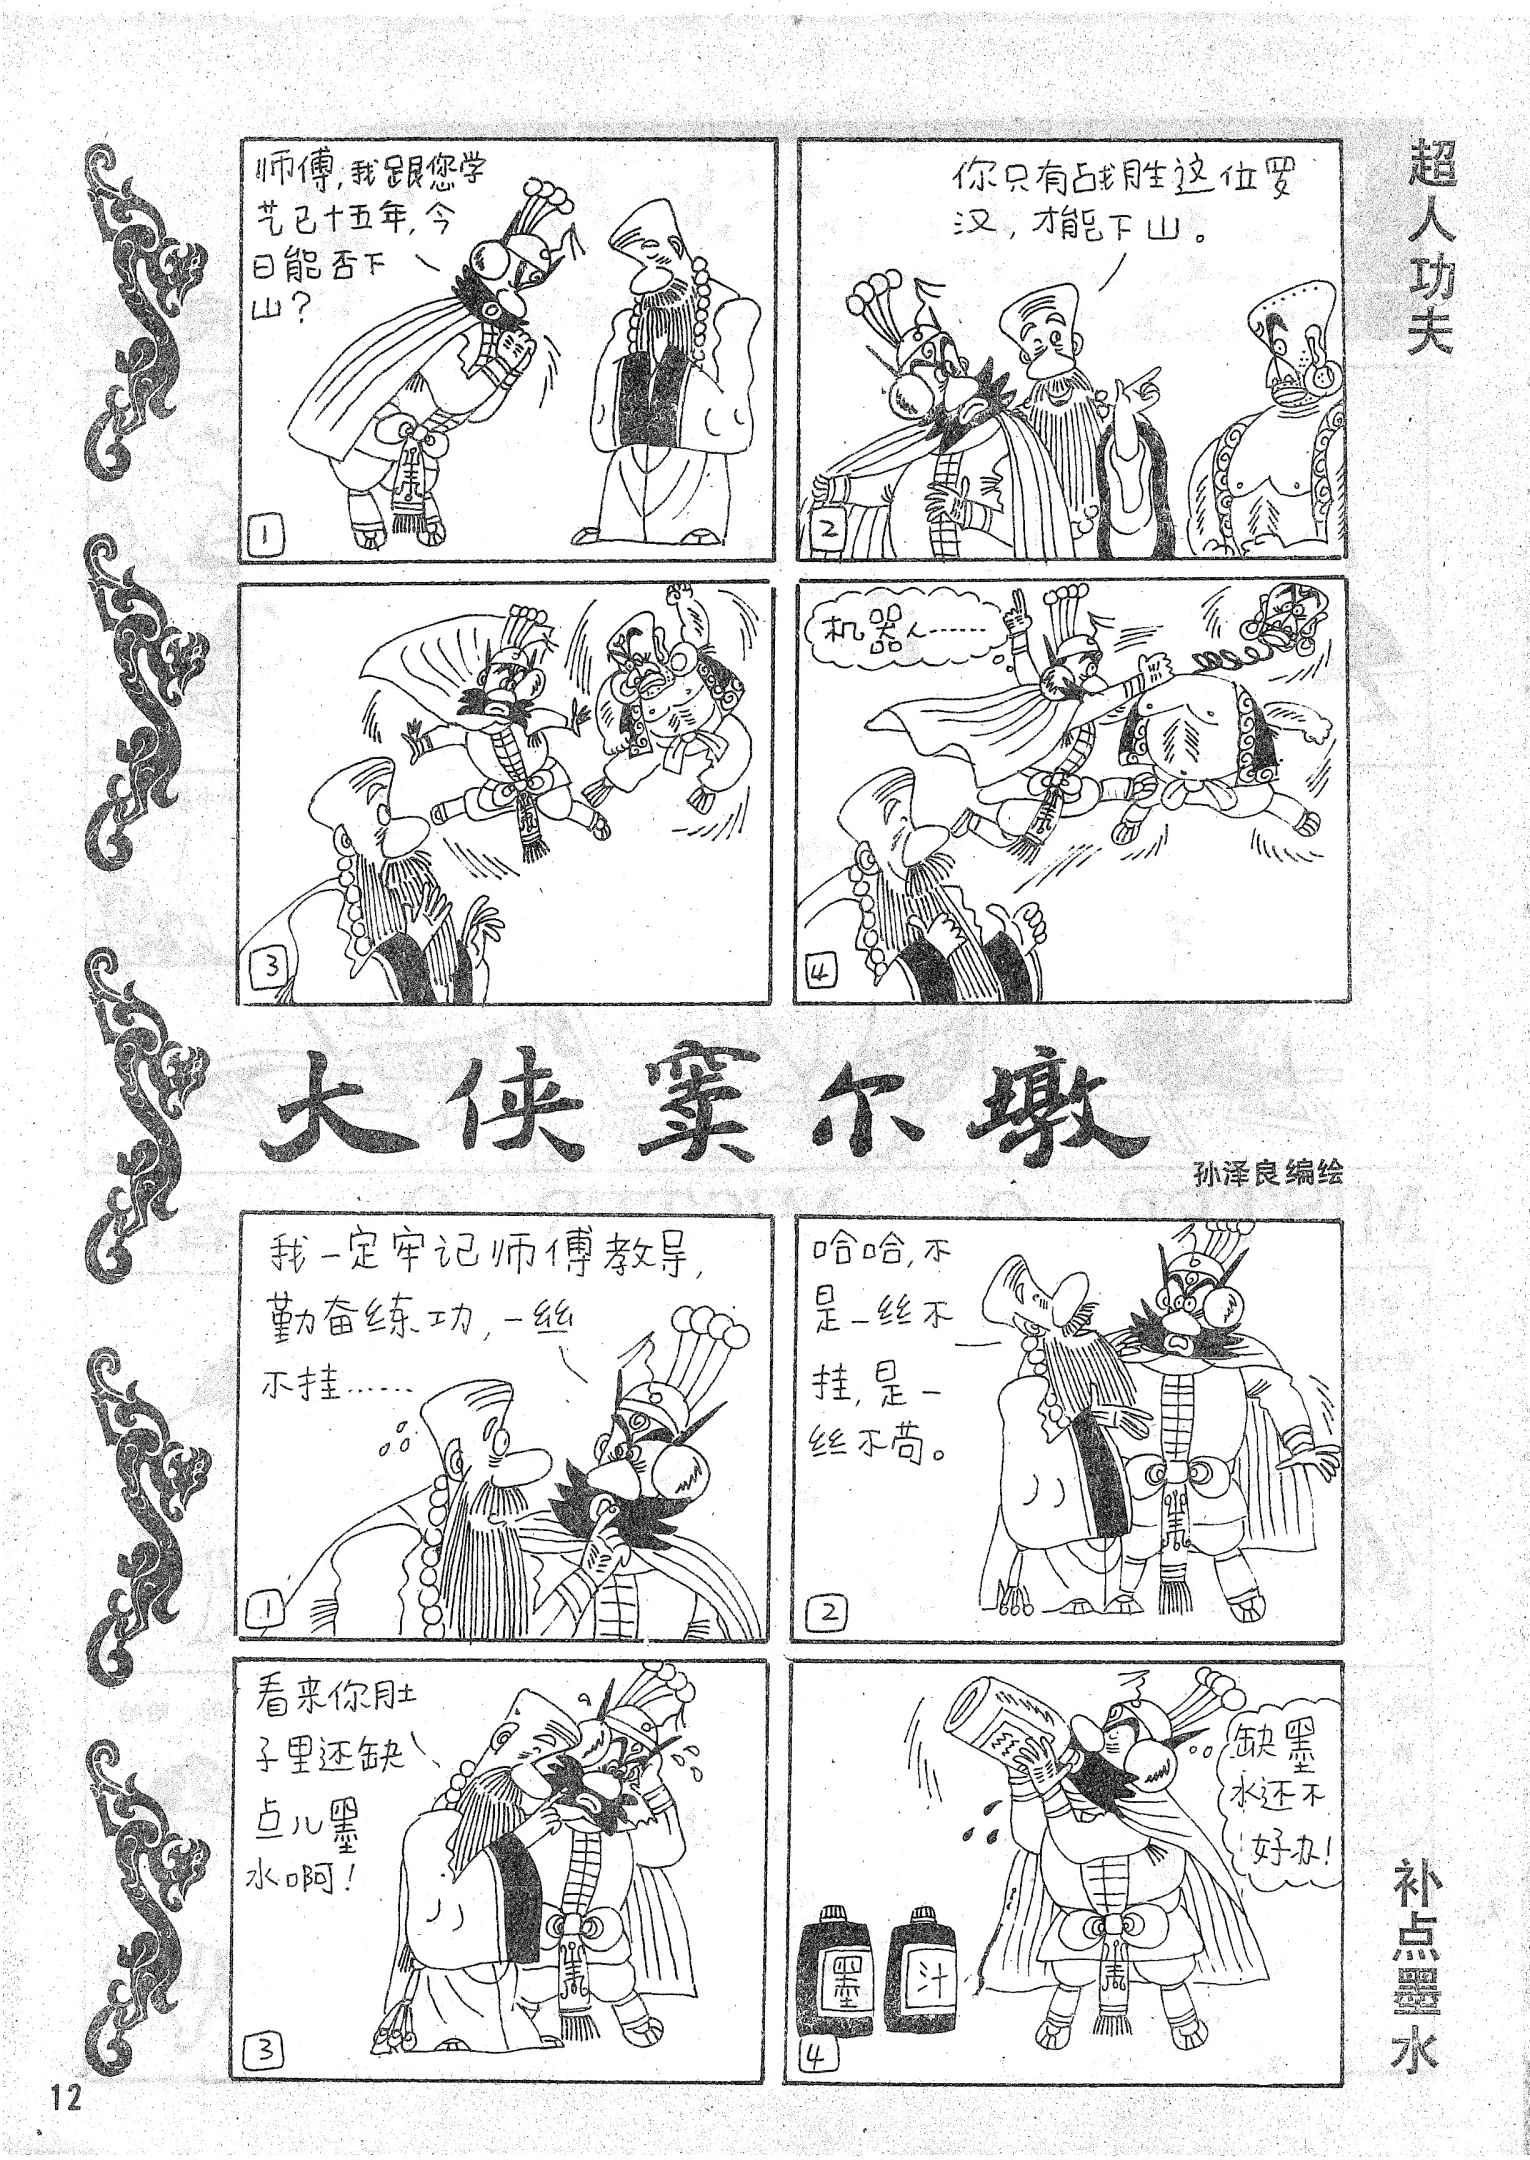 超人功夫
师傅,我跟您学
艺已十五年,今
日能否下
山?
1
你只有战胜这位罗
汉,才能下山。
2
3
机器人……
4
大侠窦尔墩
孙泽良编绘
我一定牢记师傅教导,
勤奋练功,一丝
不挂……
1
哈哈,不
是一丝不
挂,是一
丝不苟。
2
看来你肚
子里还缺
点儿墨
水啊!
3
缺墨
水还不
好办!
墨
汁
4
补点墨水
12